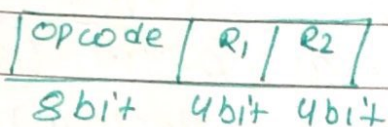 opcode R1 R2
8bit 4bit 4bit